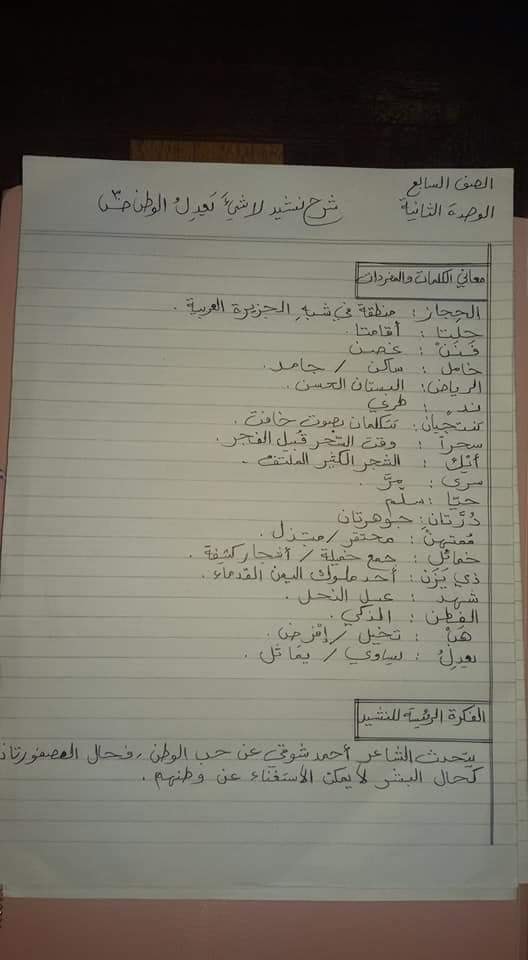 الصف السابع
الوحدة الثانية
شرح نشيد لا شيءَ يَعدِلُ الوطن ص٣
معاني الكلمات والمفردات
الحِجاز : منطقة في شبهِ الجزيرة العربية .
حلّتا : أقامتا .
فَنَنْ : غصن
خامل : ساكن / جامد .
الرياض : البستان الحسن .
ندٍ : طري
تنتجيان : تتكلمان بصوت خافت .
سحراً : وقت السّحر قُبيل الفجر .
أيْكِ : الشجر الكثير الملتف .
سرى : مرَّ .
حيّا : سلّم
دُرَّتان : جوهرتان
مُمتهنْ : محتقر / مبتذل .
خمائل : جمع خميلة / أشجار كثيفة .
ذي يَزَن : أحد ملوك اليمن القدماء .
شهد : عسل النحل .
الفطن : الذكي .
هَبْ : تخيل / إفرض .
يعدِلُ : يساوي / يماثل .
الفكرة الرئيسية للنشيد
يتحدث الشاعر أحمد شوقي عن حب الوطن ، فحال العصفورتان
كحال البشر لا يمكن الأستغناء عن وطنهم .